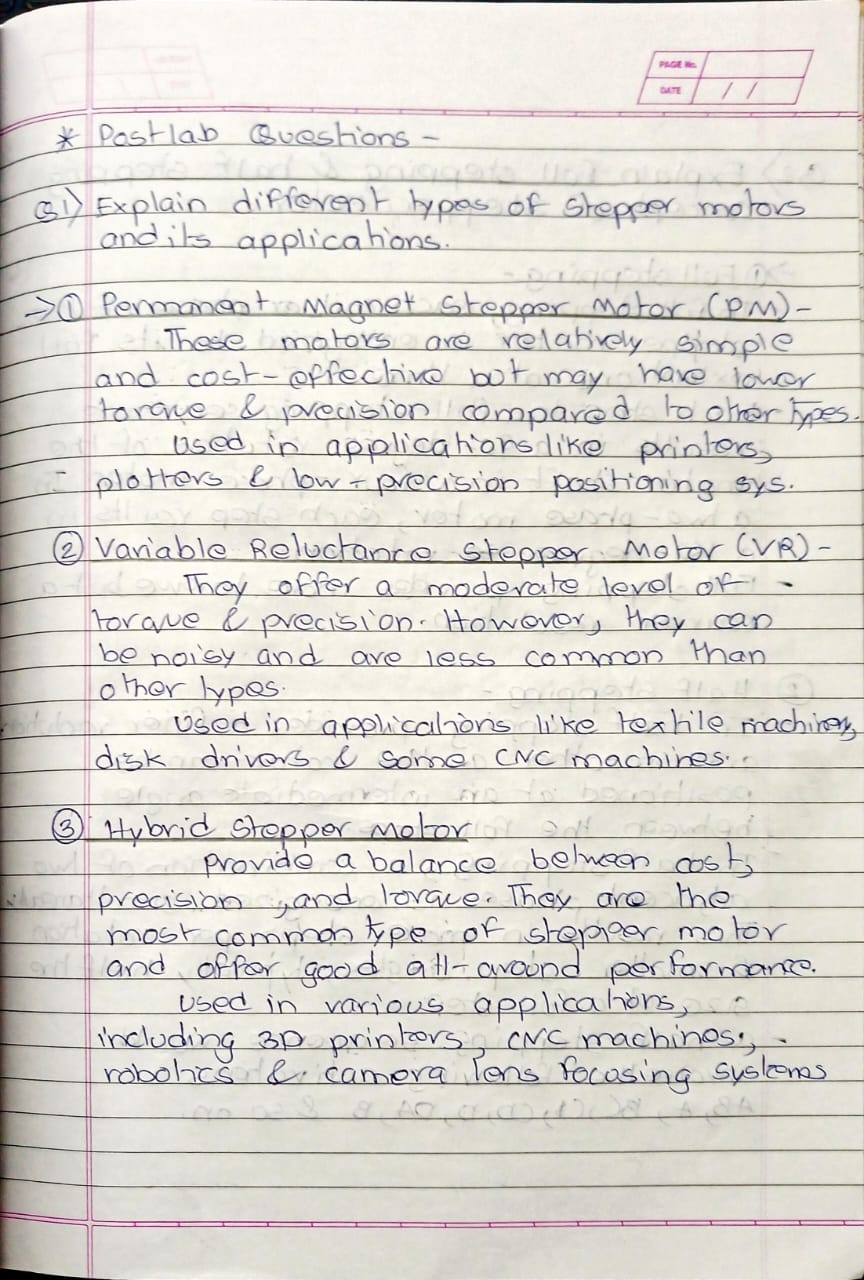 PAGE No.
DATE / /
* Postlab Questions -
Q1) Explain different types of stepper motors
and its applications.
→① Permanent Magnet Stepper Motor (PM)-
These motors are relatively simple
and cost-effective but may have lower
torque & precision compared to other types.
Used in applications like printers,
plotters & low-precision positioning sys.
② Variable Reluctance Stepper Motor (VR)-
They offer a moderate level of
torque & precision. However, they can
be noisy and are less common than
other types.
Used in applications like textile machinery,
disk drivers & some CNC machines.
③ Hybrid Stepper Motor
Provide a balance between cost,
precision, and torque. They are the
most common type of stepper motor
and offer good all-around performance.
Used in various applications,
including 3D printers, CNC machines,
robotics & camera lens focusing systems